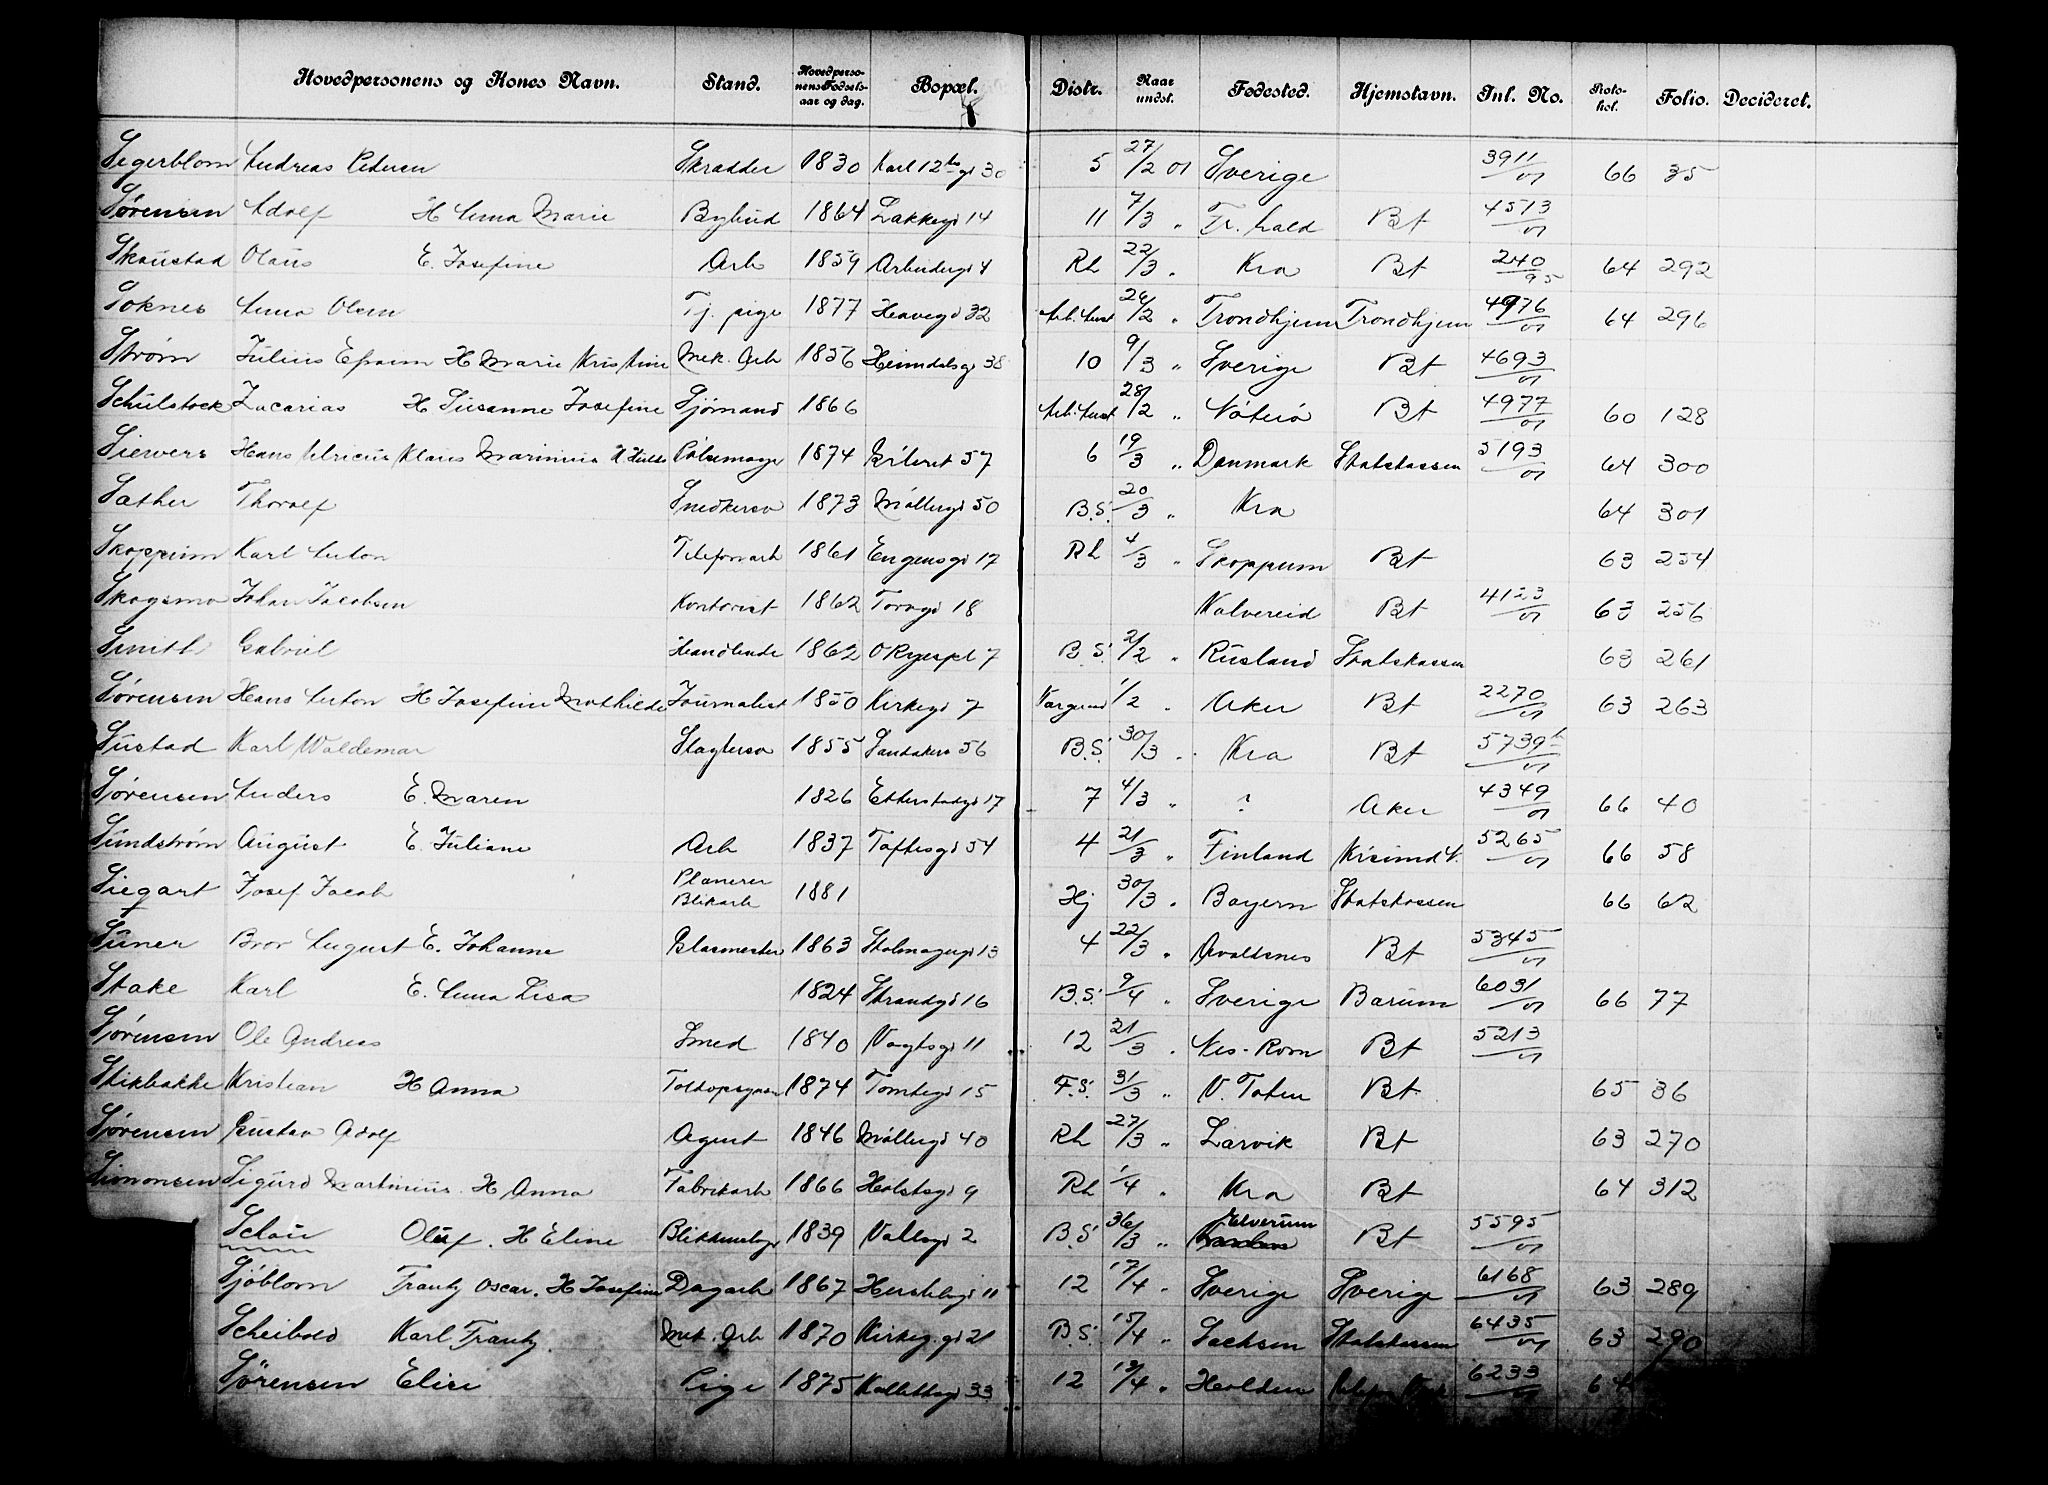 Hovedpersonens og Kones Navn. Stand. Hovedpersonens Fødselsaar og dag. Bopæl. Distr. Naar undst. Fødested. Hjemstavn. Inl. No. Protokol. Folio. Decideret.
Segerblom Andreas Pedersen Skrædder 1830 Karl 12tes gd 30 5 27/2 01 Sverige 3911/01 66 35
Sørensen Adolf H Anna Marie Bybud 1864 Lakkegd 14 11 7/3 " Fr. hald Bt 4513/01
Skaustad Olaus E. Josefine Arb 1859 Arbeidergd 4 Rh 22/3 " Kra Bt 240/95 64 292
Soknes Anna Olsen Tj. pige 1877 Heavegd 32 Arb. Anst 26/2 " Trondhjem Trondhjem 4976/01 64 296
Strøm Julius Efraim H Marie Kristine Mek. Arb 1856 Heimdalsgd 38 10 9/3 " Sverige Bt 4693/01
Schulstock Zacarias H Susanne Josefine Sjømand 1866 Arb. Anst 28/2 " Nøterø Bt 4977/01 60 128
Siewers Hans Ulricus Klaus Marinius H Hulda Pølsemager 1874 57 6 19/3 " Danmark Statskassen 5193/01 64 300
Sather Thoralf Snedkersv 1873 Møllergd 50 B.S. 20/3 " Kra 64 301
Skoppum Karl Anton Telefonarb 1861 Eugensgd 17 Rh 4/3 " Skoppum Bt 63 254
Skogsmo Johan Jacobsen Kontorist 1862 Torvgd 18 Kalvereid Bt 4123/01 63 256
Smith Gabriel Handlende 1862 O Ryespl 7 B.S. 2/2 " Rusland Statskassen 63 261
Sørensen Hans Anton H Josefine Mathilde Journalist 1850 Kirkegd 7 1/2 " Aker Bt 2270/01 63 263
Sustad Karl Waldemar Slagtersv 1855 Sandakerv 56 B.S. 30/3 " Kra Bt 5739/01
Sørensen Anders E. Maren 1826 Etterstadgd 17 7 4/3 " ? Aker 4349/01 66 40
Sundstrøm August E. Juliane Arb 1837 Toftesgd 54 4 21/3 " Finland Krisund N. 5265/01 66 58
Siegart Josef Jacob Planerer Blikarb 1881 Hj 30/3 " Bayern Statskassen 66 62
Suner Bror August E. Johanne Blæsmester 1863 Stolmagergd 13 4 22/3 " Avaldsnes Bt 5345/01
Stake Karl E. Anna Lisa 1824 Strandgd 16 B.S. 9/4 " Sverige Bærum 6031/01 66 77
Sørensen Ole Andreas Smed 1840 Vogtsgd 11 12 21/3 " Nes-Rom Bt 5213/01
Stikbakke Kristian H Anna Toldopsynm 1874 Tomtegd 15 F.S. 31/3 " V. Toten Bt 65 36
Sørensen Gustav Adolf Agent 1846 Møllergd 40 Rh 27/3 " Larvik Bt 63 270
Simonsen Sigurd Martinius. H Anna Fabrikarb 1866 Holstsgd 9 Rh 1/4 " Kra Bt 64 312
Schou Oluf. H Eline Blikkenslager 1839 Vallsgd 2 B.S. 30/3 " Elverum Bt 5595/01
Sjöblom Frantz Oscar. H Josefine Dagarb 1867 Herslebgd 11 12 17/4 " Sverige Sverige 6168/01 63 289
Scheibold Karl Frantz. Mek. Arb 1870 Kirkeg.gd 21 B.S. 15/4 " Sachsen Statskassen 6435/01 63 290
Sørensen Elise Pige 1875 33 12 13/4 " Halden 6233/01 64